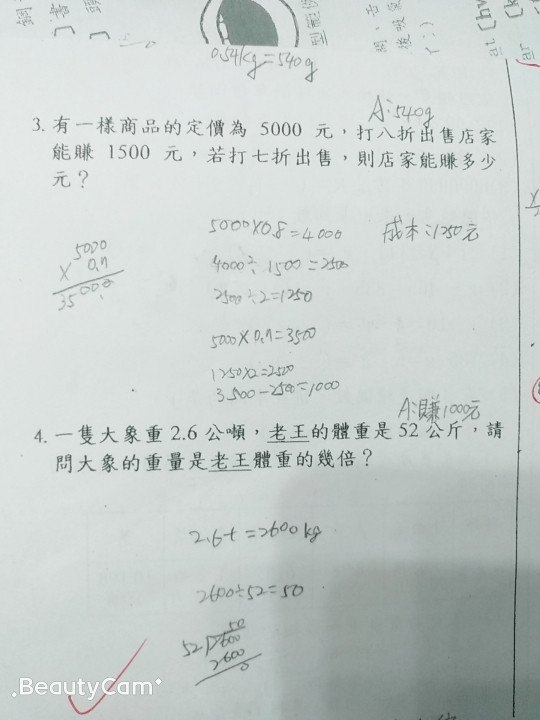 0.54kg=540g
A:540g
3. 有一樣商品的定價為 5000 元，打八折出售店家
能賺 1500 元，若打七折出售，則店家能賺多少
元？
5000×0.8=4000
成本:1250元
5000
× 0.7
35000
4000÷1500=2500
2500÷2=1250
5000×0.7=3500
1250×2=2500
3500-2500=1000
A:賺1000元
4. 一隻大象重 2.6 公噸，老王的體重是 52 公斤，請
問大象的重量是老王體重的幾倍？
2.6t=2600kg
2600÷52=50
50
52)2600
2600
0
.BeautyCam